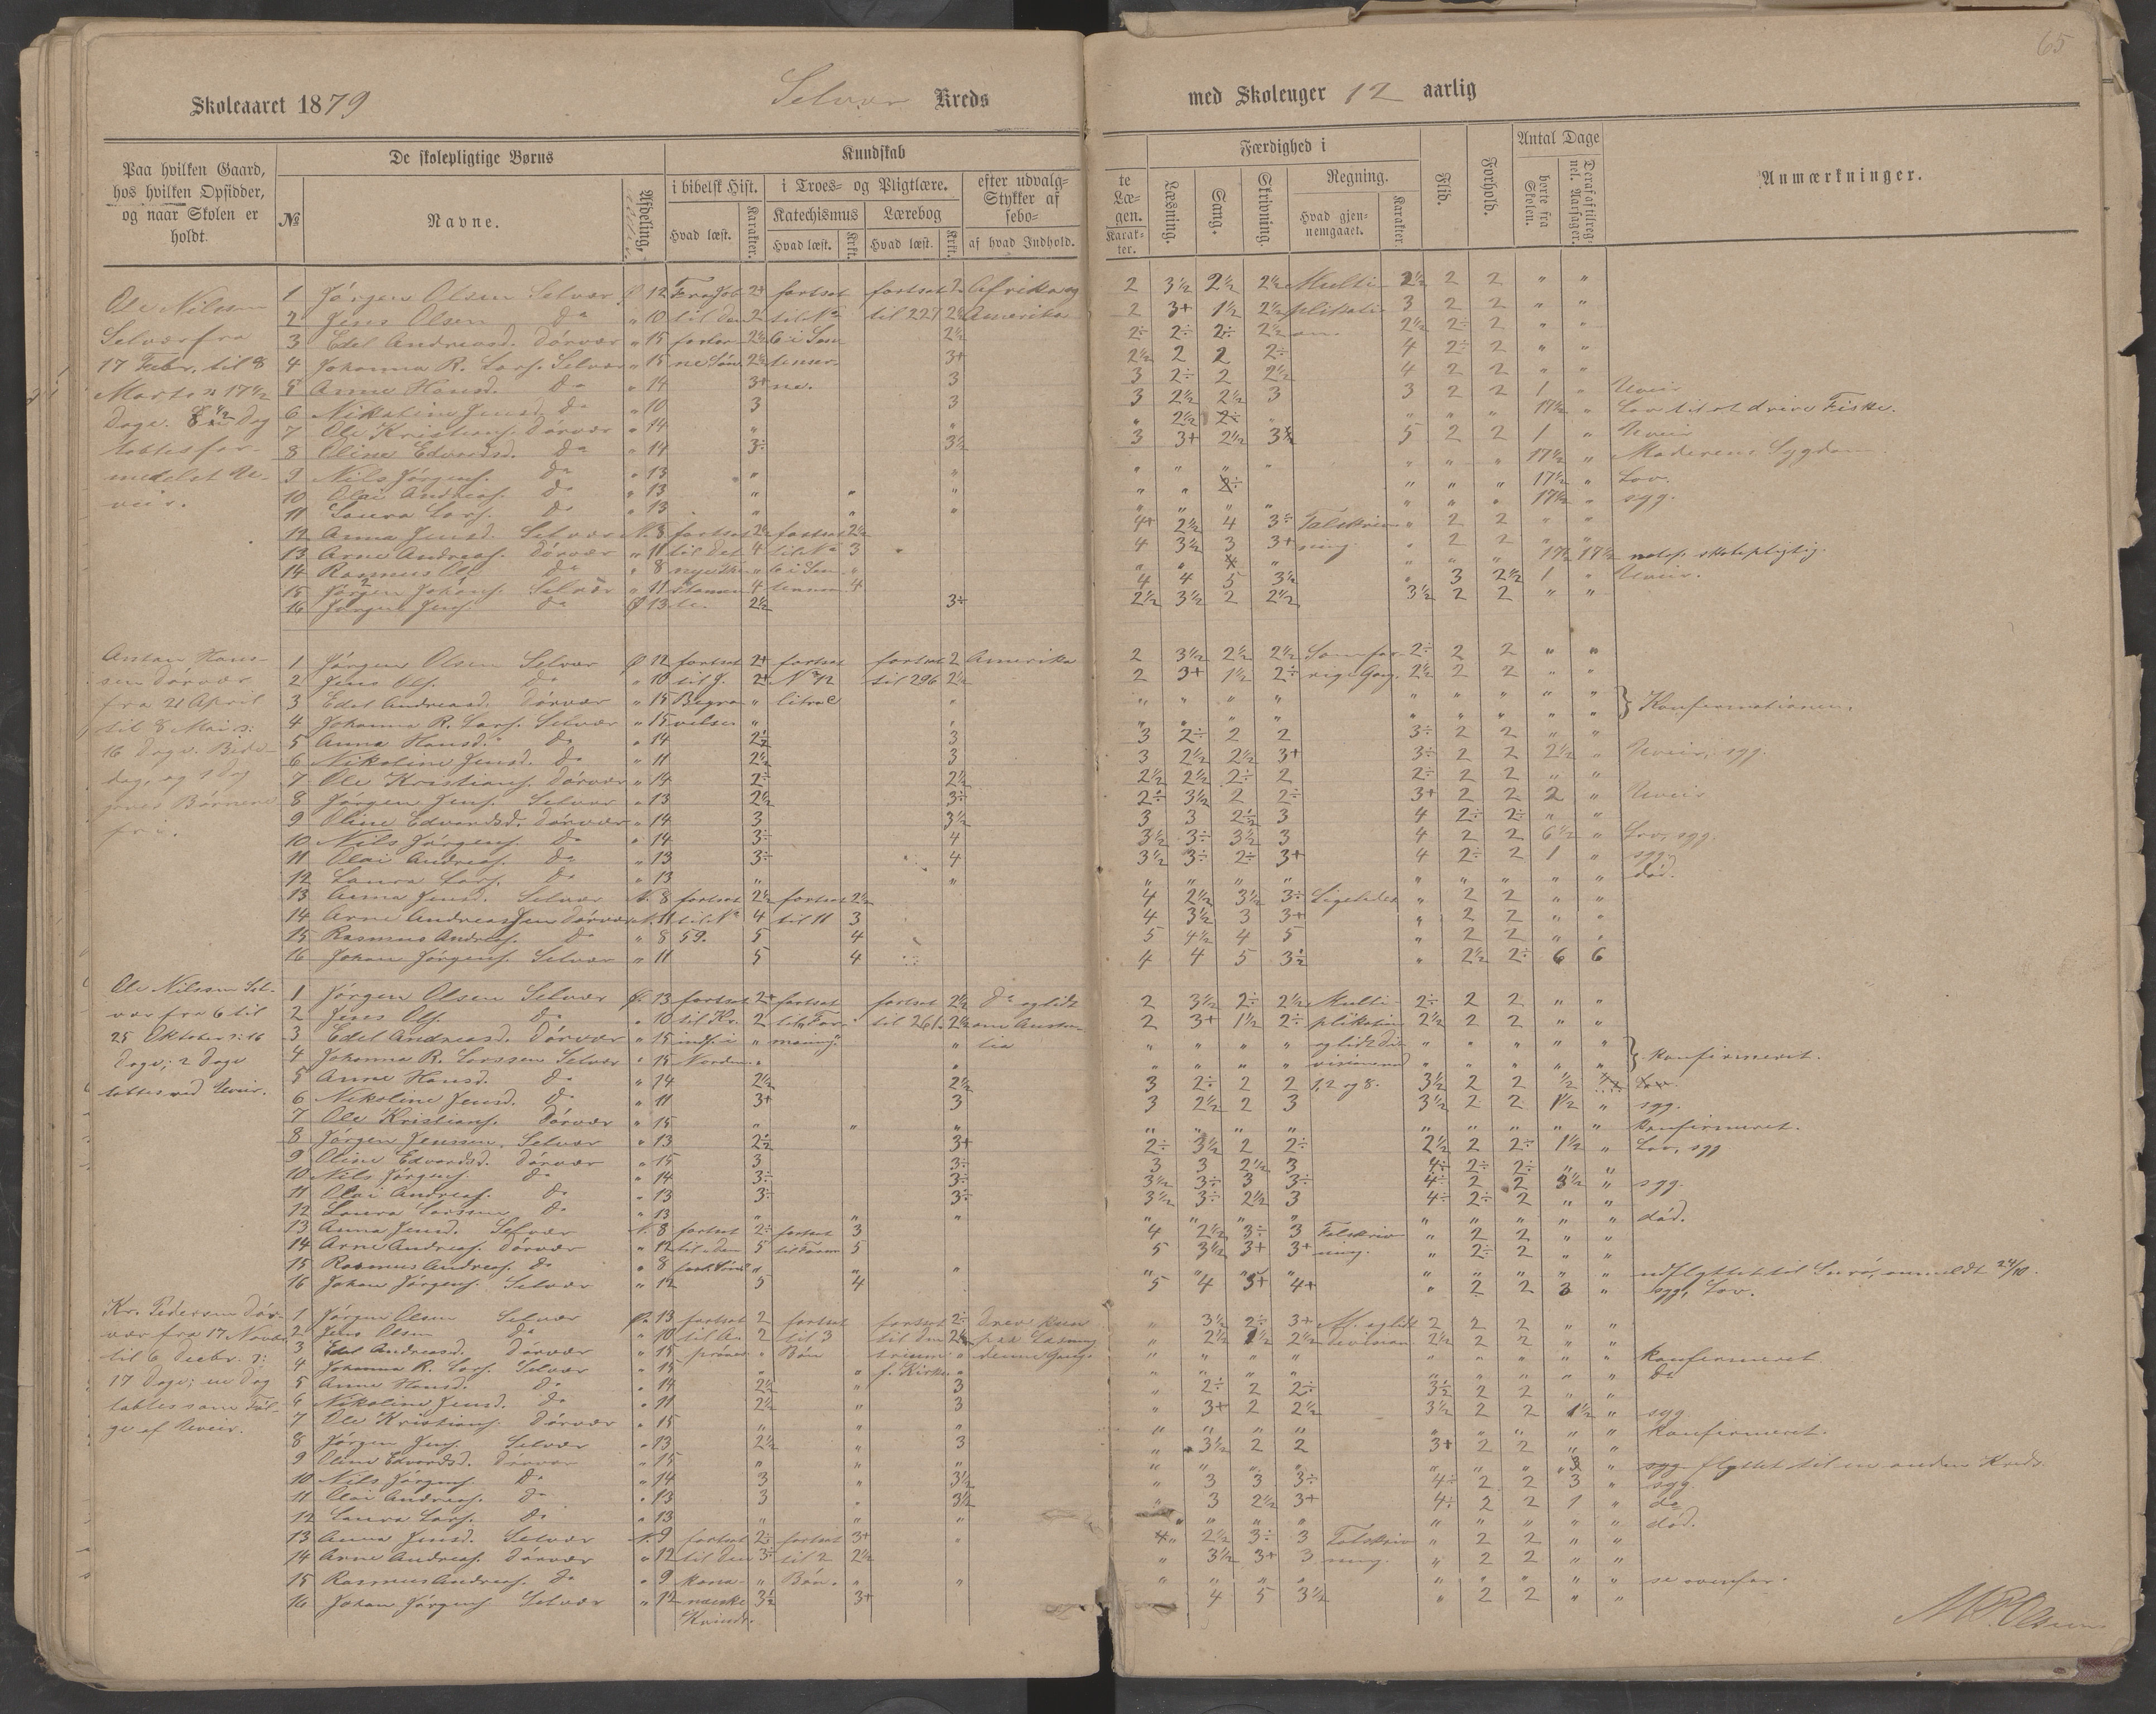 65
Skoleaaret 1879 Selvær Kreds med Skoleuger 12 aarlig
Paa hvilken Gaard, hos hvilken Opsidder, og naar Skolen er holdt.
De skolepligtige Børns
№ Navne. Afdeling.
Kundskab
i bibelsk Hist. i Troes- og Pligtlære. efter udvalg- te
Stykker af Læ-
sebo- gen.
Katechismus Lærebog
Hvad læst. Karakter. Hvad læst. Krkt. Hvad læst. Krkt. af hvad Indhold. Karak- ter.
Færdighed i
Læsning. Sang. Skrivning. Regning.
Hvad gjen- nemgaaet. Karakter.
Flid. Forhold.
Antal Dage
borte fra Skolen. Deraf af tilreg- nel. Aarsager.
Anmærkninger.
Ole Nilssen
Selvær fra
17 Febr. til 8
Marts : 17½
Dage.
tabtes for-
medelst Ue-
veir.
1 Jørgen Olsen Selvær Ø 12 fortsat fortsat 2 Afrika og 2 3½ 2½ 2½ Multi- 2½ 2 2 " "
2 Jens Olsen do " 10 til 227 Amerika 2 3+ 1½ 2½ plikati- 3 2 2 " "
3 Edel Andreasd. Dørvær " 15 2½ 2½ 2÷ 2÷ 2÷ 2½ on. 2½ 2÷ 2 " "
4 Johanna R. Lars. Selvær " 15 2½ 3+ 2½ 2 2 2÷ 4 2÷ 2 " "
5 Anne Hansd. do " 14 3+ 3 3 2÷ 2 2½ 4 2 2 " "
6 Nikoline Jensd. do " 10 3 3 3 2½ 2½ 3 3 2 2 1 " Uveir
7 Ole Kristians. Dørvær " 14 " " " 2½ 2÷ " " " " 17½ " Lov til at drive Fiske.
8 Oline Edvardsd. do " 14 3÷ 3½ 3 3+ 2½ 3½ 5 2 2 1 " Uveir
9 Nils Jørgens. do " 13 " " " " " " " " " 17½ " Moderens Sygdom.
10 Olai Andreas. do " 13 " " " " " 2÷ " " " 17½ " Lov.
11 Laura Lars. do " 13 " " " " " " " " " 17½ " syg.
12 Anna Jensd. Selvær N. 8 fortsat 2½ fortsat 2½ 4+ 2½ 4 3÷ Talskriv- " 2 2 " "
13 Arne Andreas. Dørvær " 11 til det 4 til No 3 4 3½ 3 3+ ning. " 2 2 " "
14 Rasmus Ols do " 8 nye " 6 i " " " 4 " " " " 17½ 17½ skolepligtig.
15 Jørgen Johans. Selvær " 11 4 4 4 4 5 3½ " 3 2½ 1 " Uveir.
16 Jørgen Jens. do Ø 13 2½ 3÷ 2½ 3½ 2 2½ 3½ 2 2 " "
Anton Hans-
sen Dørvær
fra 21 April
til 8 Mai :
16 Dage. Bede-
dag, og 1 Dag
gaves Børnene
fri.
1 Jørgen Olsen Selvær Ø 12 fortsat 2+ fortsat fortsat 2 Amerika 2 3½ 2½ 2½ Som for- 2÷ 2 2 " "
2 Jens Ols. do " 10 til J. 2+ til 296 2½ 2 3+ 1½ 2÷ rige Gang. 2½ 2 2 " "
3 Edel Andreasd. Dørvær " 15 Begra- " " " " " " " " " " " } Konfirmationen.
4 Johanna R. Lars. Selvær " 15 velse " " " " " " " " " " "
5 Anna Hansd. do " 14 2½ 3 3 2÷ 2 2 3÷ 2 2 " "
6 Nikoline Jensd. do " 11 2½ 3 3 2½ 2½ 3+ 3÷ 2 2 2½ " Uveir, syg.
7 Ole Kristians. Dørvær " 14 2÷ 2½ 2½ 2½ 2÷ 2 2÷ 2 2 " "
8 Jørgen Jens. Selvær " 13 2½ 3÷ 2÷ 3½ 2 2÷ 3+ 2 2 2 " Uveir
9 Oline Edvardsd. Dørvær " 14 3 3½ 3 3 2½ 3 4 2÷ 2÷ " "
10 Nils Jørgens. do " 14 3÷ 4 3½ 3÷ 3½ 3 4 2 2 6½ " Lov, syg.
11 Olai Andreas. do " 13 3÷ 4 3½ 3÷ 2÷ 3+ 4 2÷ 2 1 " syg.
12 Laura Lars. do " 13 " " " " " " " " " " " død.
13 Anna Jensd. Selvær N. 8 fortsat 2½ fortsat 2½ 4 2½ 3½ 3÷ Ligeledes " 2 2 " "
14 Arne Andreassen Dørvær N. 11 til No 4 til 11 3 4 3½ 3 3+ " 2 2 " "
15 Rasmus Andreas. do " 8 59. 5 4 5 4½ 4 5 " 2 2 " "
16 Johan Jørgens. Selvær " 11 5 4 4 4 5 3½ " 2½ 2÷ 6 6
Ole Nilssen Sel-
vær fra 6 til
25 Oktober : 16
Dage; 2 Dage
tabtes ved Uveir.
1 Jørgen Olsen Selvær Ø. 13 fortsat 2+ fortsat fortsat 2½ do og lidt 2 3½ 2÷ 2½ Multi- 2÷ 2 2 " "
2 Jens Ols. do " 10 til Kr. 2 til Far- til 261 2½ om Austra- 2 3+ 1½ 2÷ plikation 2½ 2 2 " "
3 Edel Andreasd. Dørvær " 15 indf. i " maning. " lia " " " " og lidt di- " " " " " } konfirmeret.
4 Johanna R. Larssen Selvær " 15 Norden. " " " " " " vision med " " " " "
5 Anne Hansd. do " 14 2½ 2½ 3 2÷ 2 2 1, 2 og 8. 3½ 2 2 ½
6 Nikoline Jensd. do " 11 3+ 3 3 2½ 2 3 3½ 2 2 1½ " syg.
7 Ole Kristians. Dørvær " 15 " " " " " " " " " " " " konfirmeret.
8 Jørgen Jenssen. Selvær " 13 2½ 3+ 2÷ 3½ 2 2÷ 2½ 2 2÷ 1½ " Lov, syg
9 Oline Edvardsd. Dørvær " 15 3 3÷ 3 3 2½ 3 4÷ 2÷ 2÷ " "
10 Nils Jørgens. do " 14 3÷ 3÷ 3½ 3÷ 3 3÷ 4÷ 2 2 3½ " syg.
11 Olai Andreas. do " 13 3÷ 3÷ 3½ 3÷ 2½ 3 4÷ 2÷ 2 " "
12 Laura Larssen do " 13 " " " " " " " " " " " " død.
13 Anna Jensd. Selvær N. 8 fortsat 2÷ fortsat 3 4 2½ 3÷ 3 Talskriv- " 2 2 " "
14 Arne Andreas. Dørvær " 12 til den 5 5 5 3½ 3+ 3+ ning. " 2÷ 2 " "
15 Rasmus Andreas. do " 8 " " " " " " " " " " " udflyttet til anmeldt 24/10.
16 Johan Jørgens. Selvær " 12 5 4 5 4 5+ 4+ " 2 2 3 " syg, Lov.
Kr. Pedersen Dør-
vær fra 17 Novbr.
til 6 Decbr. :
17 Dage; en Dag
tabtes som Føl-
ge af Uveir.
1 Jørgen Olsen Selvær Ø 13 fortsat 2 fortsat fortsat 2÷ Drev kun " 3½ 2÷ 3+ M. og lidt 2 2 2 " "
2 Jens Olsen do " 10 2 til 3 til den 2½ paa Læsning " 2½ 1½ 2½ division 2½ 2 2 " "
3 Edel Andreasd. Dørvær " 15 " Bøn " denne Gang. " " " " " " " " " konfirmeret.
4 Johanna R. Lars. Selvær " 15 " " f. Kirke. " " " " " " " " " " do
5 Anne Hansd. do " 14 2½ " 3 " 2÷ 2 2÷ 3½ 2 2 " "
6 Nikoline Jensd. do " 11 2½ " 3 " 3+ 2 2½ 3½ 2 2 1½ " syg
7 Ole Kristians. Dørvær " 15 " " " " " " " " " " " " konfirmeret.
8 Jørgen Jens. Selvær " 13 2½ " 3 " 3½ 2 2 3+ 2 2 " "
9 Oline Edvardsd. Dørvær " 15 " " " " " " " " " " 3 " syg flyttet til en anden Kreds.
10 Nils Jørgens. do " 14 3 " 3½ " 3 3 3÷ 4÷ 2 2 3 " syg.
11 Olai Andreas. do " 13 3 " 3½ " 3 2½ 3+ 4÷ 2 2 1 " do
12 Laura Lars. do " 13 " " " " " " " " " " " " død.
13 Anna Jensd. Selvær N. 9 fortsat 2÷ fortsat 3+ " 2½ 3÷ 3 Talskriv- " 2 2 " "
14 Arne Andreas. Dørvær " 12 til den 3÷ til 2 2½ " 3½ 3+ 3 ning. " 2 2 " "
15 Rasmus Andreas. do " 9 kana- " Bøn. " " " " " " " " " " " se ovenfor.
16 Johan Jørgens Selvær " 12 næiske 3½ 3+ 4 5 3½ " 2 2 " "
Kvinde.